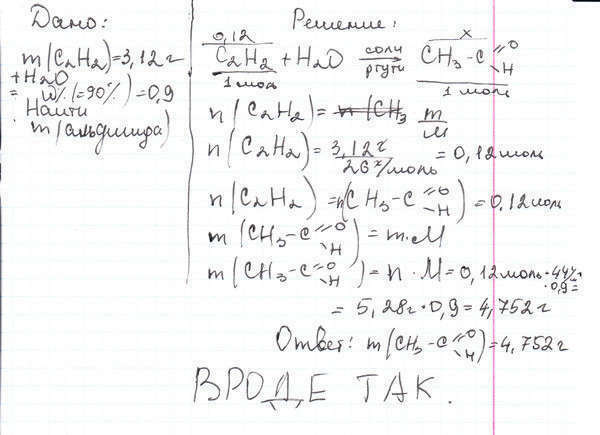 Дано:
m(C₂H₂)=3,12г
+H₂O
= W%(=90%)=0,9
Найти
m(альдегида)
Решение:
0,12 x
C₂H₂+H₂O соли ртути CH₃-C=O H
1 моль 1 моль
n(C₂H₂)= n(CH₃ m/M
n(C₂H₂)= 3,12г/26г/моль =0,12моль
n(C₂H₂)=n(CH₃-C=O H)=0,12моль
m(CH₃-C=O H)=m·M
m(CH₃-C=O H)=n·M=0,12моль·44г/
·0,9=
=5,28г·0,9=4,752г
Ответ: m(CH₃-C=O H)=4,752г
ВРОДЕ ТАК.